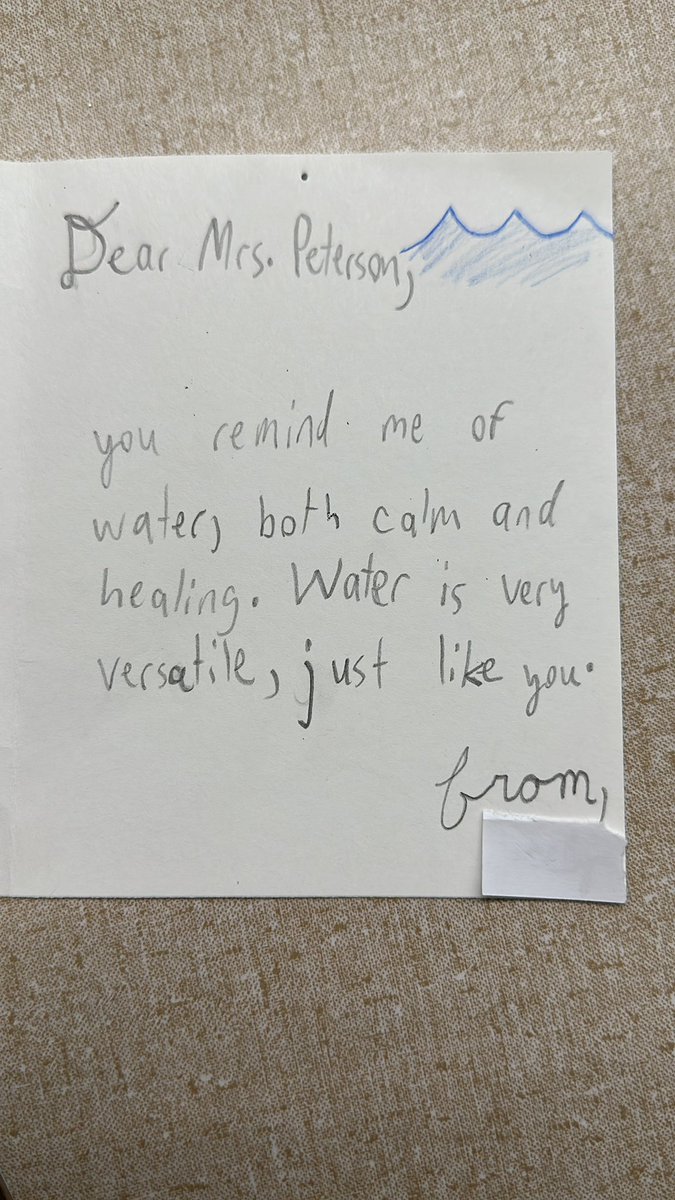 Dear Mrs. Peterson,
you remind me of
water, both calm and
healing. Water is very
versatile, just like you.
from,